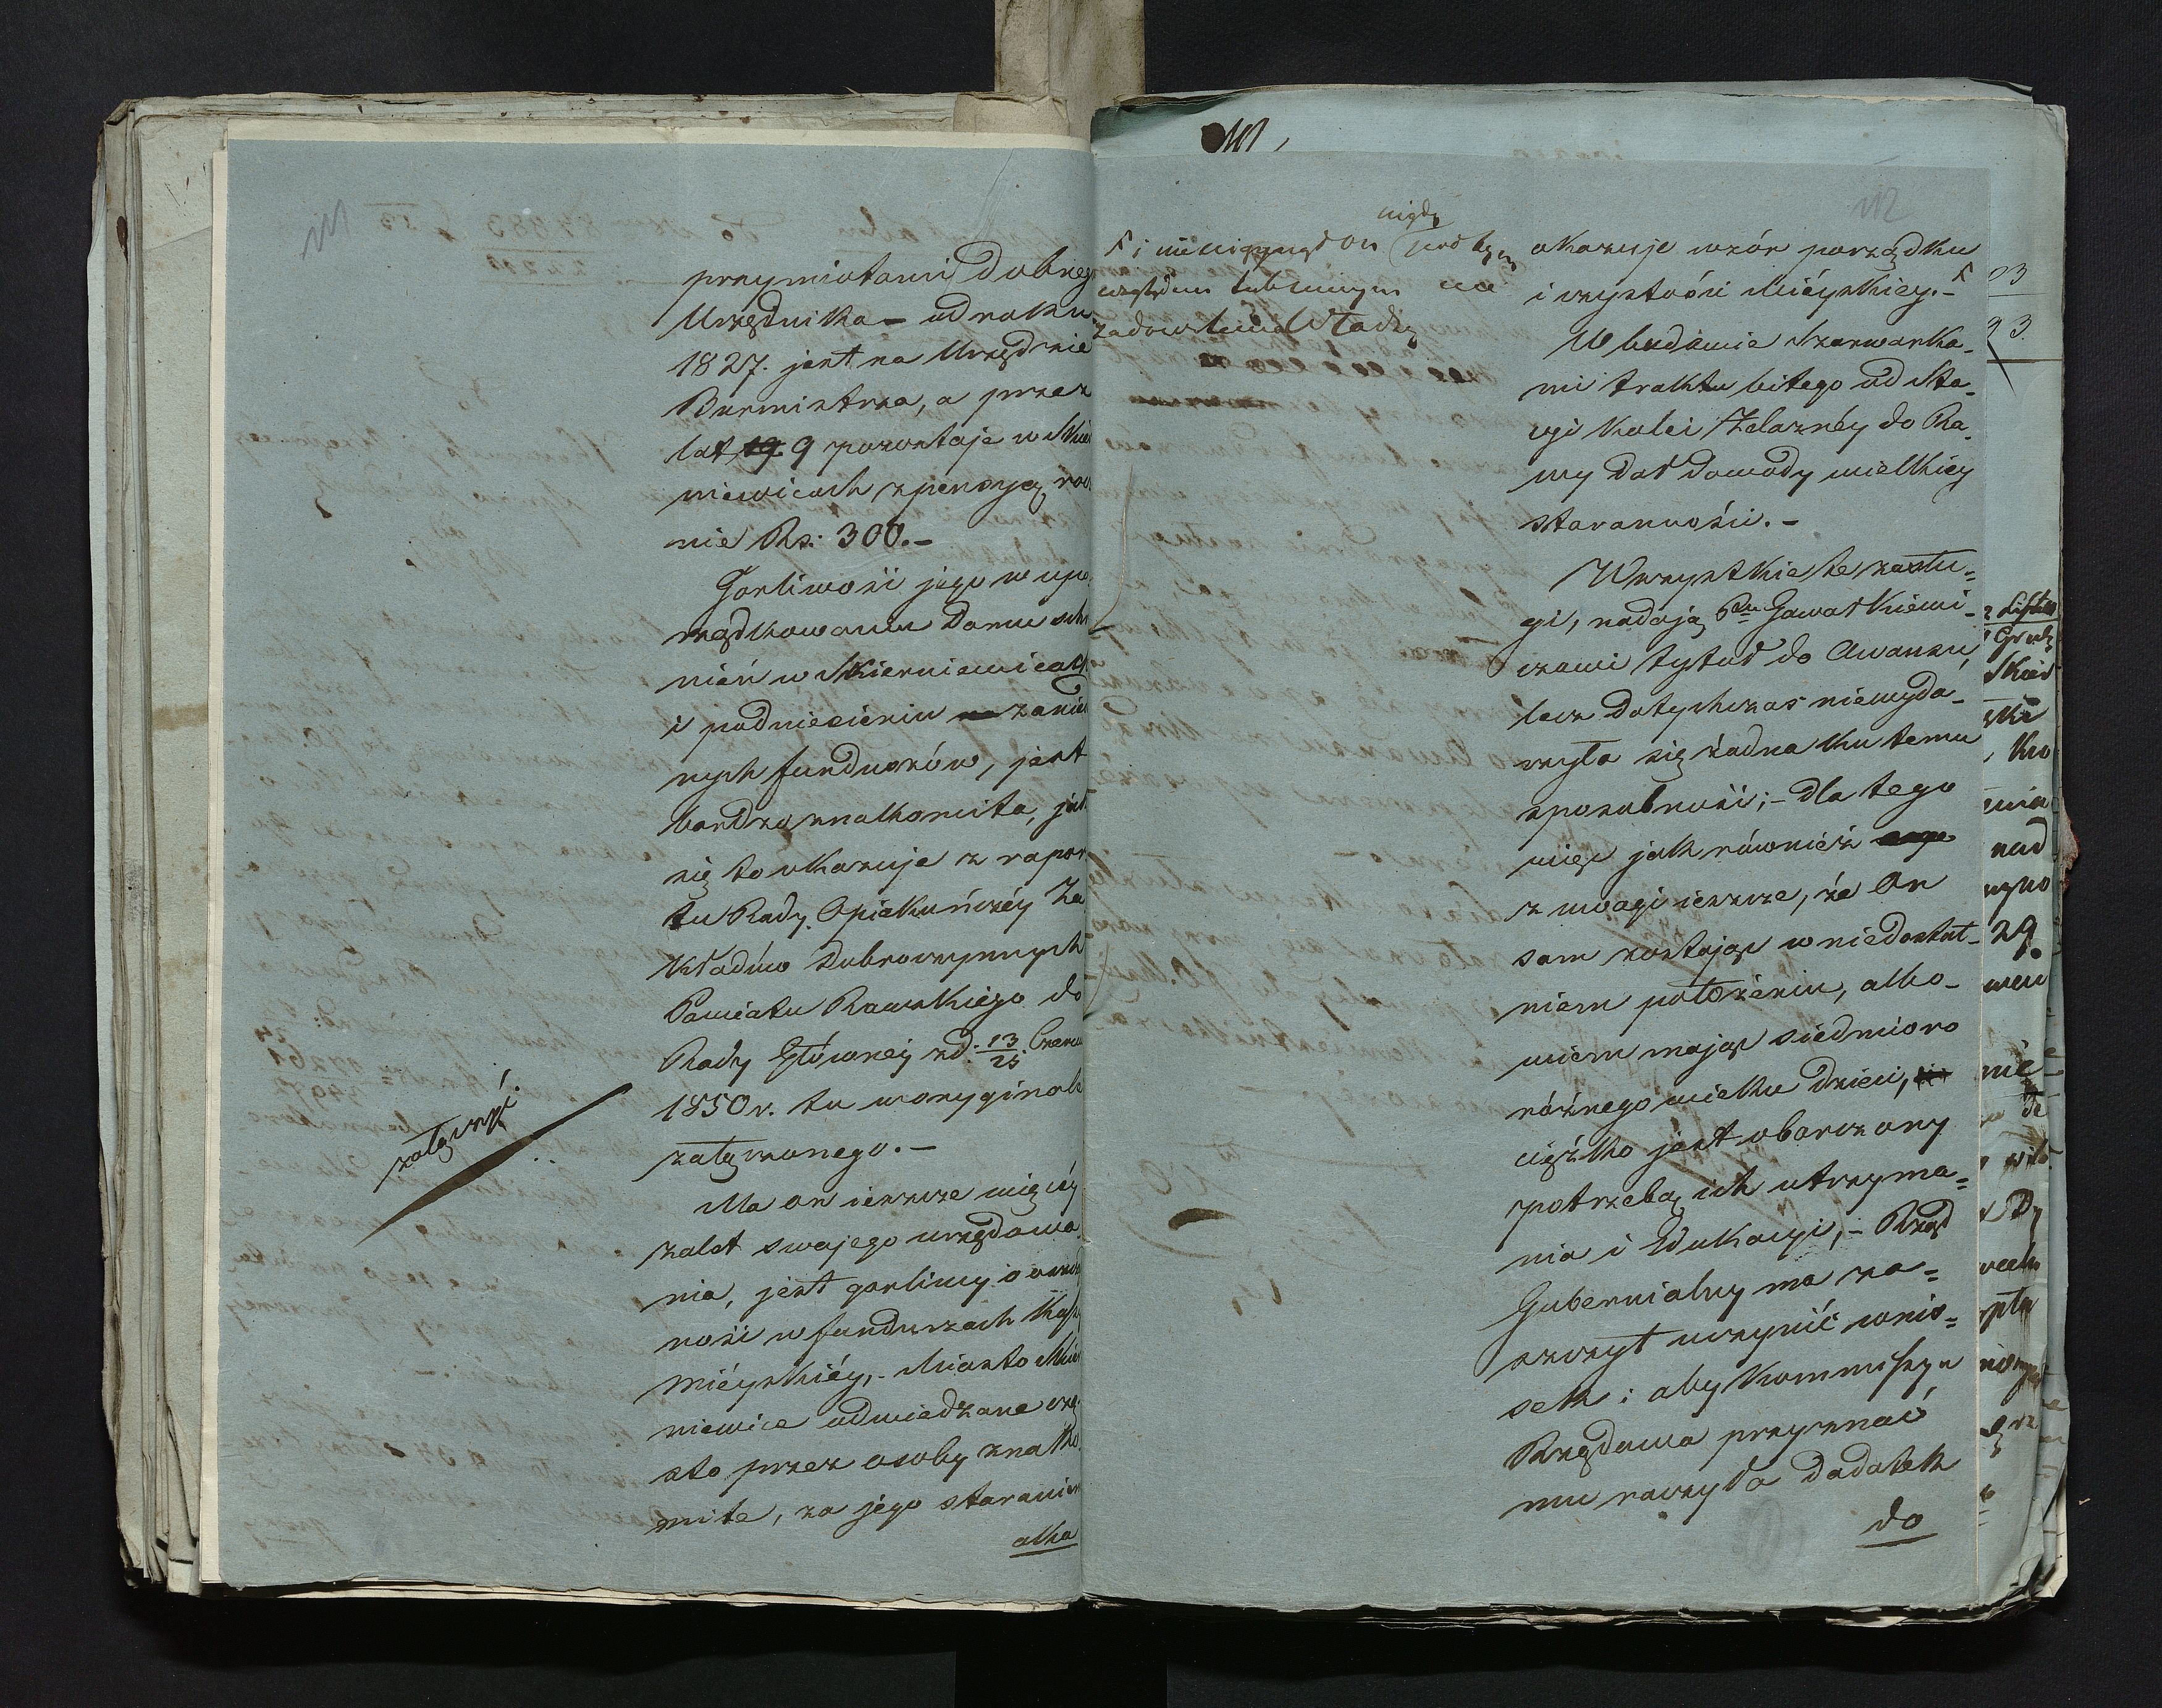 przymiotami dobreg
Urzędnika – od roku
1827. jest na Urzędzie
Burmistrza, a przez
lat 9 pozostaje w Skier
niewicach z pensyą rocz
nie Rs: 300.–
Gorliwość jego w upo
rządkowaniu Domu sch
nień w Skierniewicach
i podniesieniu zanied
nych funduszów, jest
bardzo znakomita, jak
się to okazuje z rapor
tu Rady Opiekuńczéy Za
kładów Dobroczynnych
Powiatu Rawskiego do
Rady Głównéy z d: 13/25 Czerw
1850 r. tu w oryginale
załączonego.–
załączyć.
Ma on ieszcze więcéy
zalet swojego urzędowa
nia, jest gorliwy o
ności w funduszach Kassy
Miéyskiéy,– Miasto Skier
niewice odwiedzane czę
sto przez osoby znako
mite, za jego staraniem
oka
111
112
nigdy
i nieuciążał On prośbą
względem lub
zadowolenia Władzy
okazuje wzór porządku
i czystości Miéyskiey.–
W budowie Szarwarka-
mi traktu bitego od Sta-
cyi Kolei Żelaznéy do Ra-
wy dał dowody wielkiey
staranności.–
Wszystkie te zasłu=
gi, nadają Pnu Gawałkiewi-
czowi tytuł do Awansu,
lecz dotychczas niewyda-
rzyła się żadna ku temu
sposobność;– dla tego
więc jak również
z uwagi ieszcze, że On
sam zostając w niedostat-
niem położeniu, albo-
wiem mając siedmioro
różnego wieku dzieci,
ciężko jest obarczony
potrzebą ich utrzyma=
nia i Edukacyi,– Rząd
Gubernialny ma za=
szczyt uczynić wnio=
sek: aby Kommissya
Rządowa przyznać
mu raczyła dodatek
do
03
93.
29.
nad